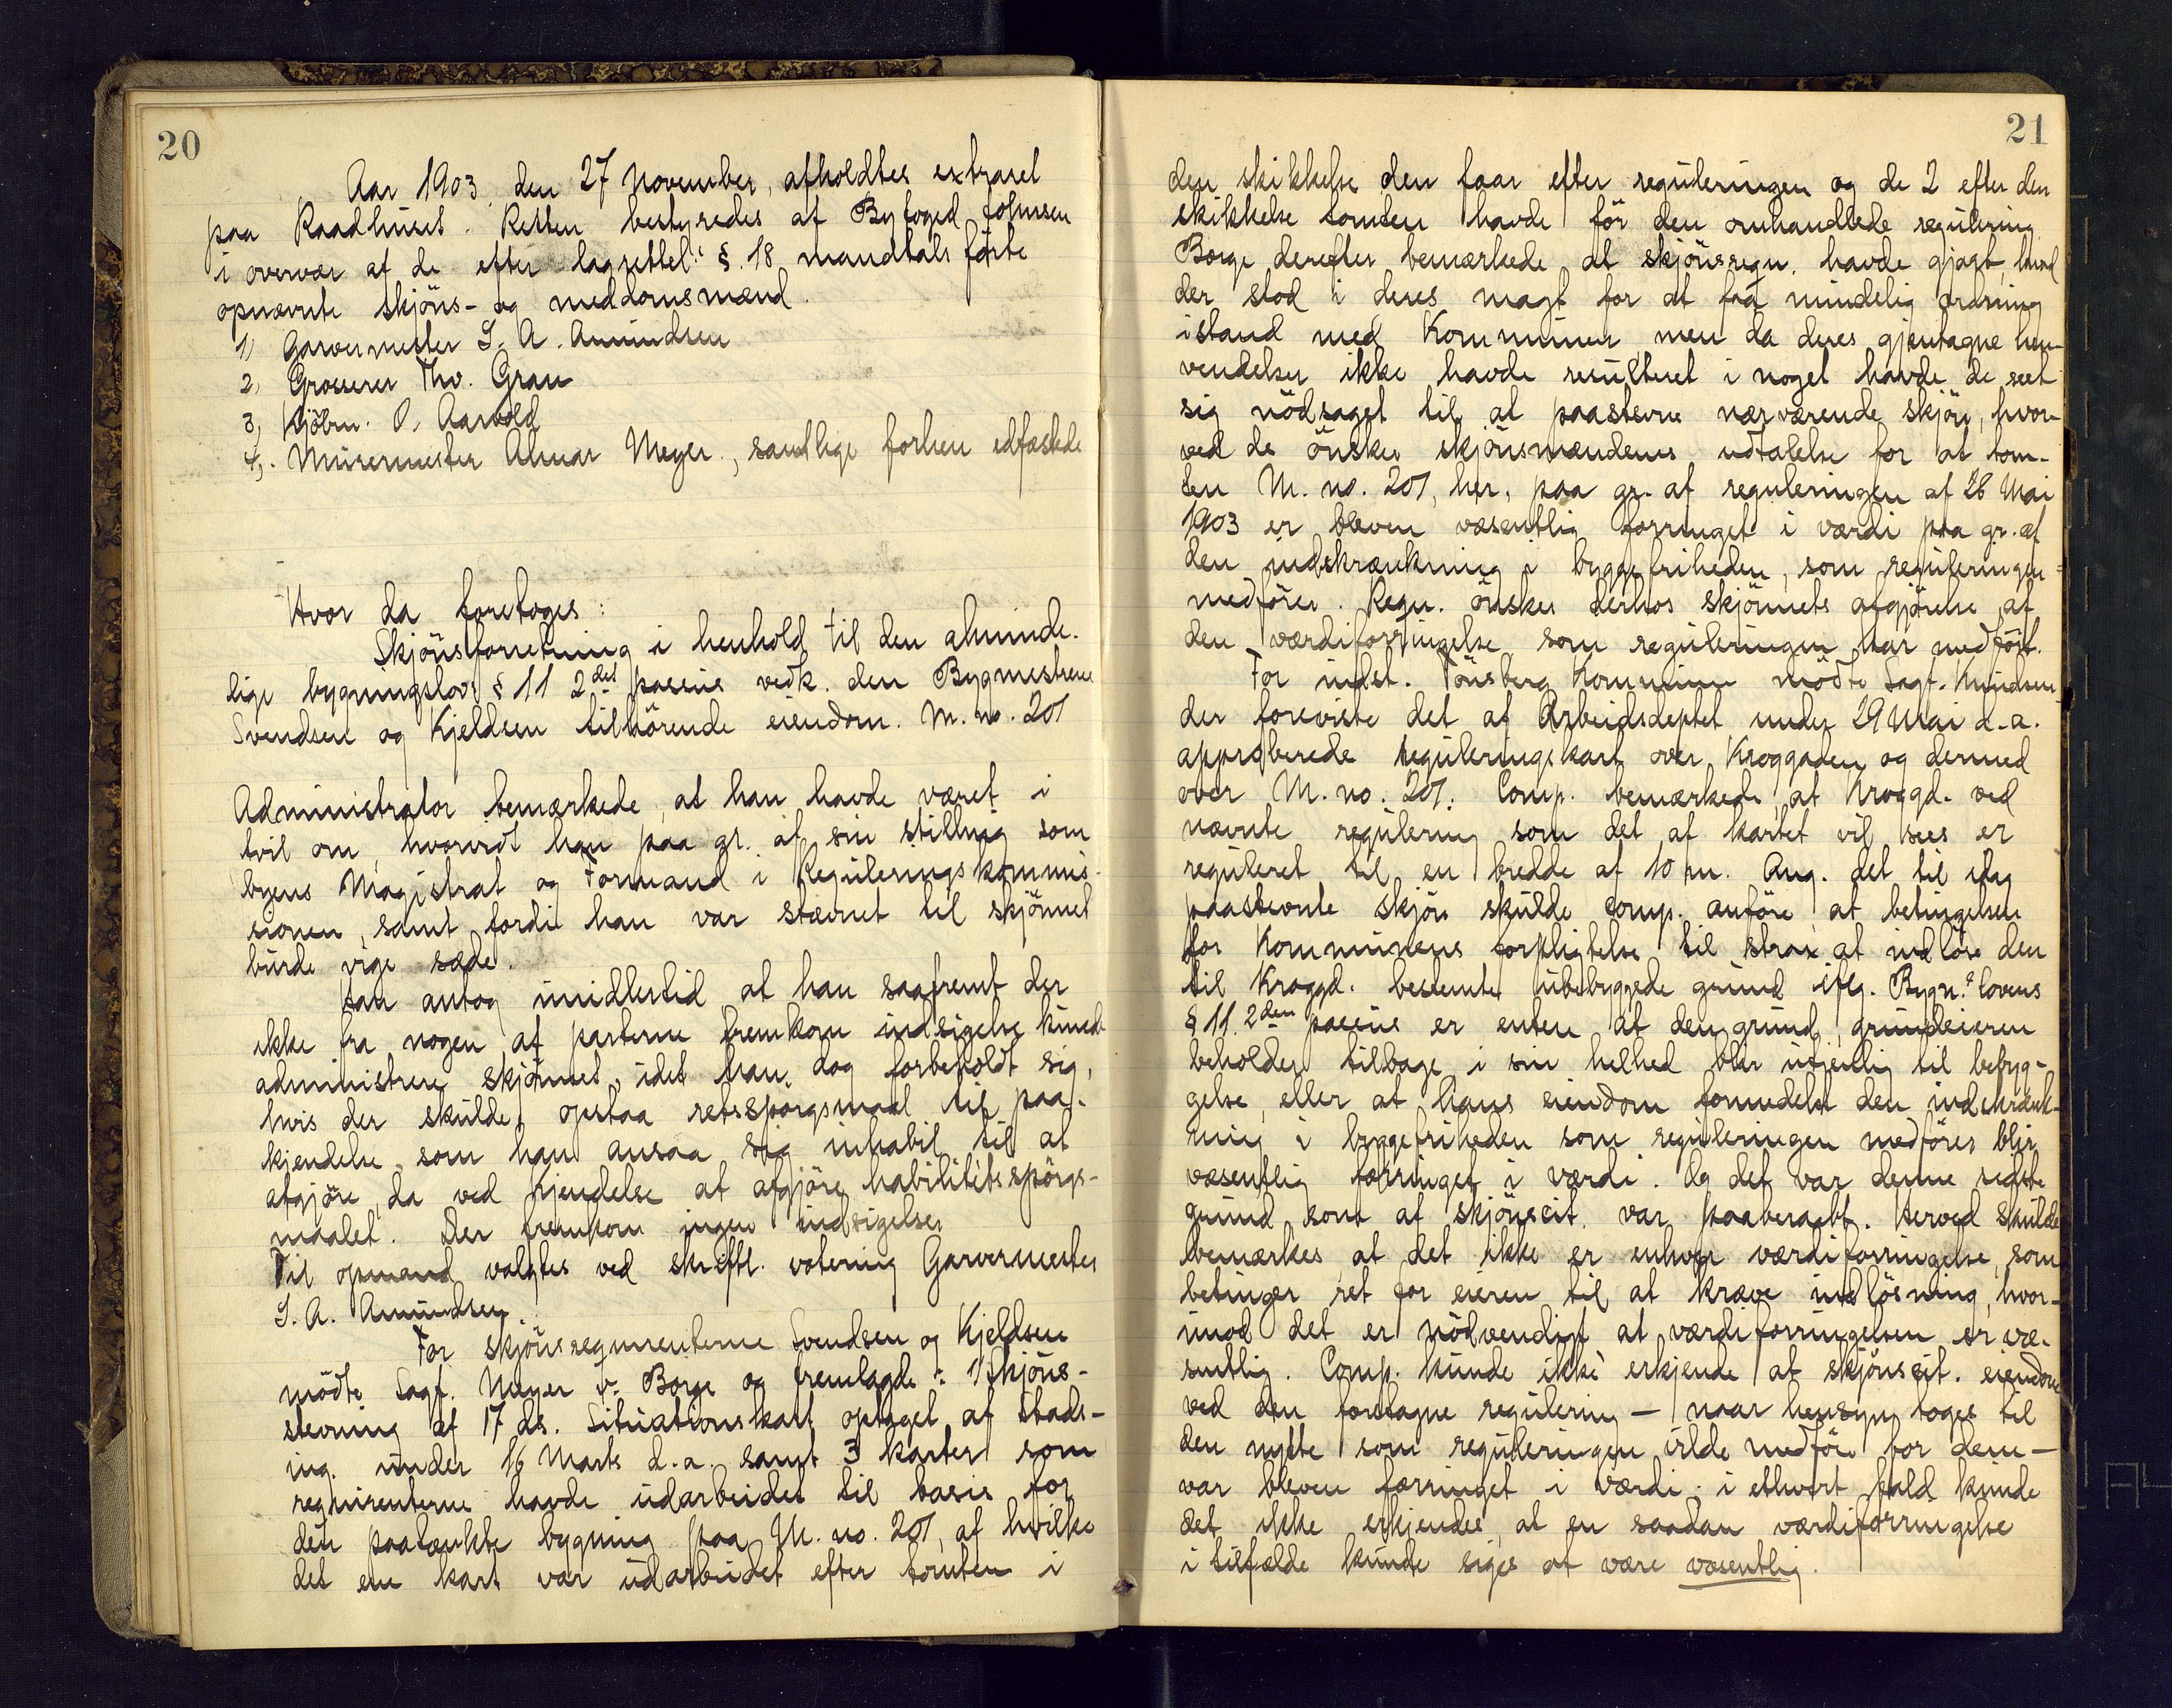 20
Aar 1903 den 27 November, afholdtes extraret
paa Raadhuset. Retten bestyredes af Byfoged Johnsen
i overvær af de efter lagrettel. § 18 mandtals førte
opnævnte skjöns- og meddomsmænd.
1) Garvermester S. A. Amundsen
2) Grosserer Thv. Grau
3) Kjöbm. O. Aarvold
4). Murermester Almar Meyer, samtlige forhen edfæstede
Hvor da foretoges:
Skjönsforretning i henhold til den alminde-
lige bygningslovs § 11 2det passus vedk. den Bygmestrene
Svendsen og Kjeldsen tilhörende eiendom. M. no. 207
Administrator bemærkede, at han havde været i
tvil om, hvorvidt han paa gr. af sin stilling som
byens Magistrat og Formand i Reguleringskommis-
sionen, samt fordi han var stævnet til skjönnet
burde vige sæde.
Han antog imidlertid at han saafremt der
ikke fra nogen af parterne fremkom indsigelse kunde
administrere skjönnet, idet han dog forbeholdt sig,
hvis der skulde opstaa retsspörgsmaal til paa-
kjendelse, som han ansaa sig inhabil til at
afgjöre, da ved kjendelse at afgjöre habilitetsspörgs-
maalet. Der fremkom ingen indsigelser
Til opmand valgtes ved skriftl. votering Garvermester
S. A. Amundsen.
For skjönsrequirenterne Svendsen og Kjeldsen
mödte Sagf. Meyer v. Borge og fremlagde: 1 skjöns-
stevning af 17 ds. Situationskart optaget af Stads-
ing. under 16 Marts d.a. samt 3 karter som
requirenterne havde udarbeidet til basis for
den paatænkte bygning paa M. no. 207, af hvilke
det ene kart var udarbeidet efter tomten i
21
den skikkelse den faar efter reguleringen og de 2 efter den
skikkelse tomten havde för den omhandlede regulering.
Borge derefter bemærkede at skjönsreqn. havde gjort, hvad
der stod i deres magt for at faa mindelig ordning
istand med Kommunen men da deres gjentagne hen-
vendelser ikke havde resulteret i noget havde de seet
sig nödsaget til at paastevne nærværende skjön, hvor-
ved de önsker skjönsmændenes udtalelse for at tom-
ten M. no. 207, her, paa gr. af reguleringen af 26 Mai
1903 er bleven væsentlig forringet i værdi paa gr. af
den indskrænkning i byggefriheden, som reguleringen
medförer. Reqn. önsker derhos skjönnets afgjörelse af
den værdiforringelse som reguleringen har medfört.
For indst. Tönsberg Kommune mödte Sagf. Knudsen
der foreviste det af Arbeidsdeptet under 29 Mai d.a.
approberede reguleringskart over Kroggaden og dermed
over M. no. 207. Comp. bemærkede, at Kroggd. ved
nævnte regulering som det af kartet vil sees er
reguleret til en bredde af 10 m. Ang. det til idag
paastevnte skjön skulde comp. anföre at betingelsen
for Kommunens forpligtelse til strax at indlöse den
til Kroggd. bestemte ubebyggede grund iflg. Bygn.s lovens
§ 11. 2den passus er enten at den grund, grundeieren
beholder tilbage i sin helhed blir utjenlig til bebyg-
gelse, eller at hans eiendom formedelst den indskrænk-
ning i byggefriheden som reguleringen medförer blir
væsentlig forringet i værdi. Og det var denne sidste
grund som af skjönscit. var paaberaabt. Herved skulde
bemærkes at det ikke er enhver værdiforringelse, som
betinger ret for eieren til at kræve indlösning, hvor-
imod det er nödvendigt at værdiforringelsen er væ-
sentlig. Comp. kunde ikke erkjende at skjönscit. eiendom
ved den foretagne regulering – naar hensyn toges til
den nytte som reguleringen vilde medföre for dem –
var bleven forringet i værdi, i ethvert fald kunde
det ikke erkjendes, at en saadan værdiforringelse
i tilfælde kunde siges at være væsentlig.